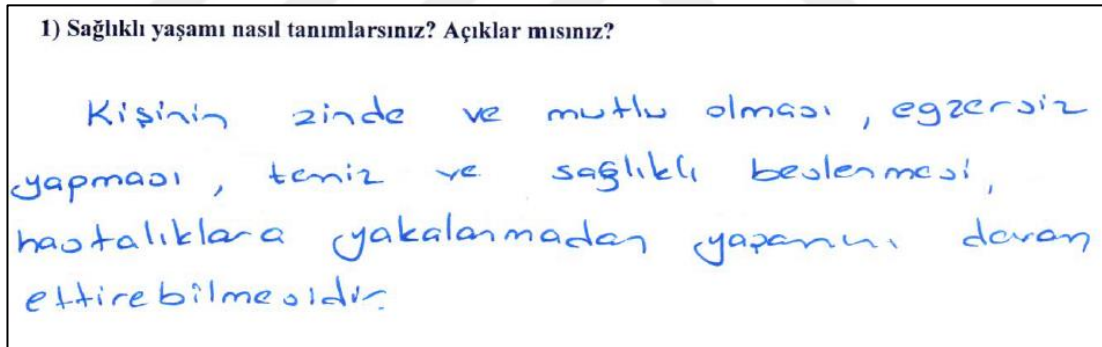 1) Sağlıklı yaşamı nasıl tanımlarsınız? Açıklar mısınız?
Kişinin zinde ve mutlu olması, egzersiz
yapması, temiz ve sağlıklı beslenmesi,
hastalıklara yakalanmadan yaşamını devam
ettirebilmesidir.